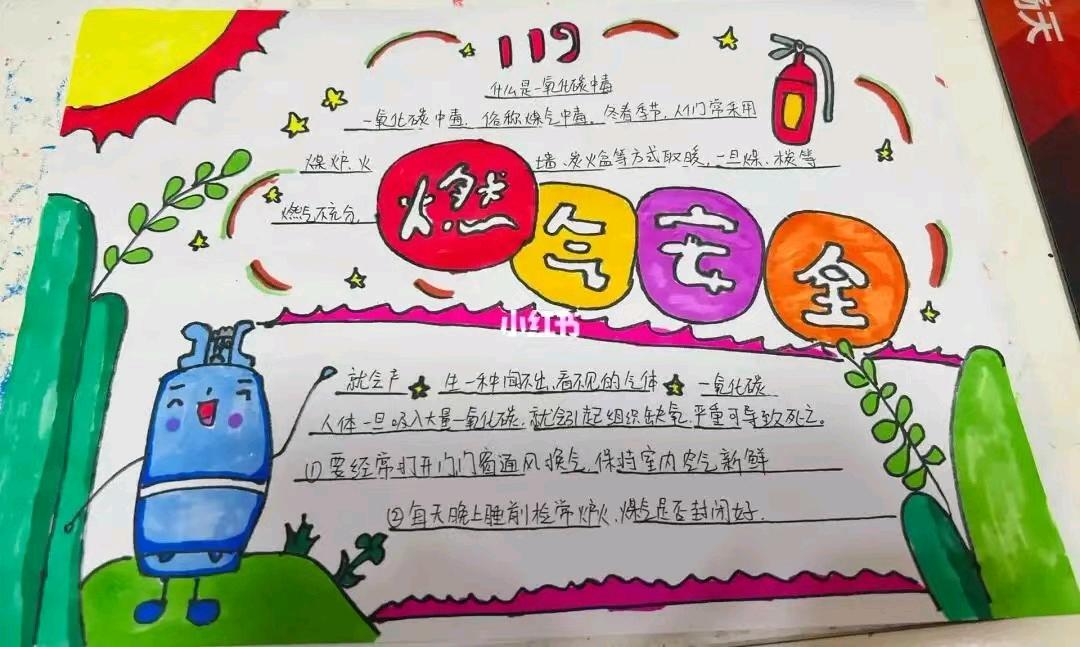 119
什么是一氧化碳中毒
一氧化碳中毒,俗称煤气中毒。冬春季节,人们常采用
煤炉、火墙、炭火盆等方式取暖,一旦煤、炭等
燃气不充分,
燃气安全
小红书
就会产★生一种闻不出、看不见的气体★一氧化碳
人体一旦吸入大量一氧化碳,就会引起组织缺氧,严重可导致死亡。
①要经常打开门门窗通风换气,保持室内空气新鲜
②每天晚上睡前检常炉火、煤气是否封闭好.
航天